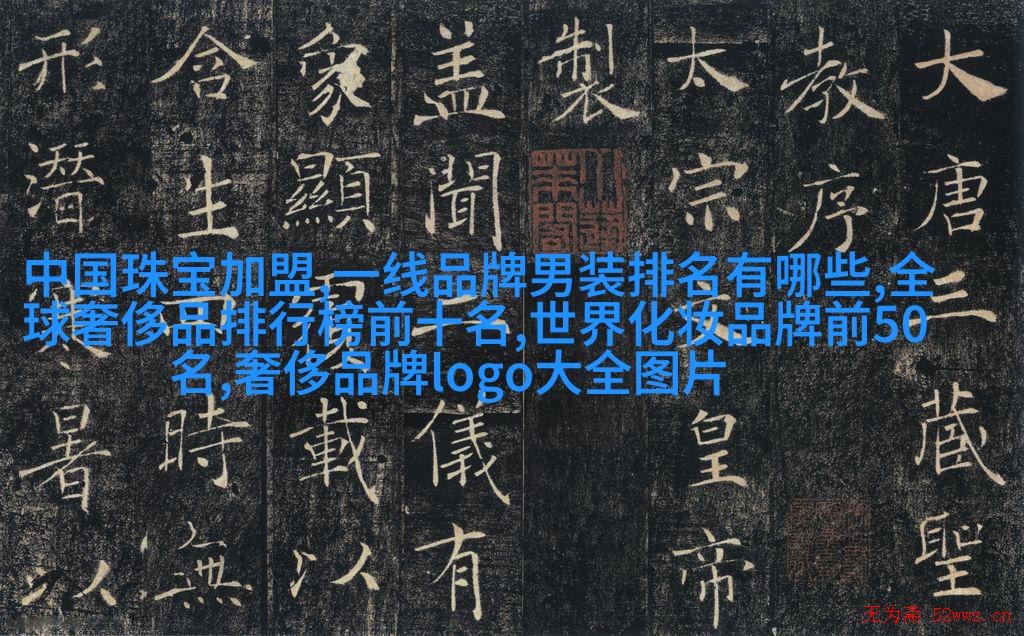 大唐三藏聖
教序
太宗文皇帝
製
盖聞二儀有
象顯覆載以
含生四時無
形潛寒暑以
中国珠宝加盟,一线品牌男装排名有哪些,全
球奢侈品排行榜前十名,世界化妆品牌前50
名,奢侈品牌logo大全图片
无为斋 52wwz.cn